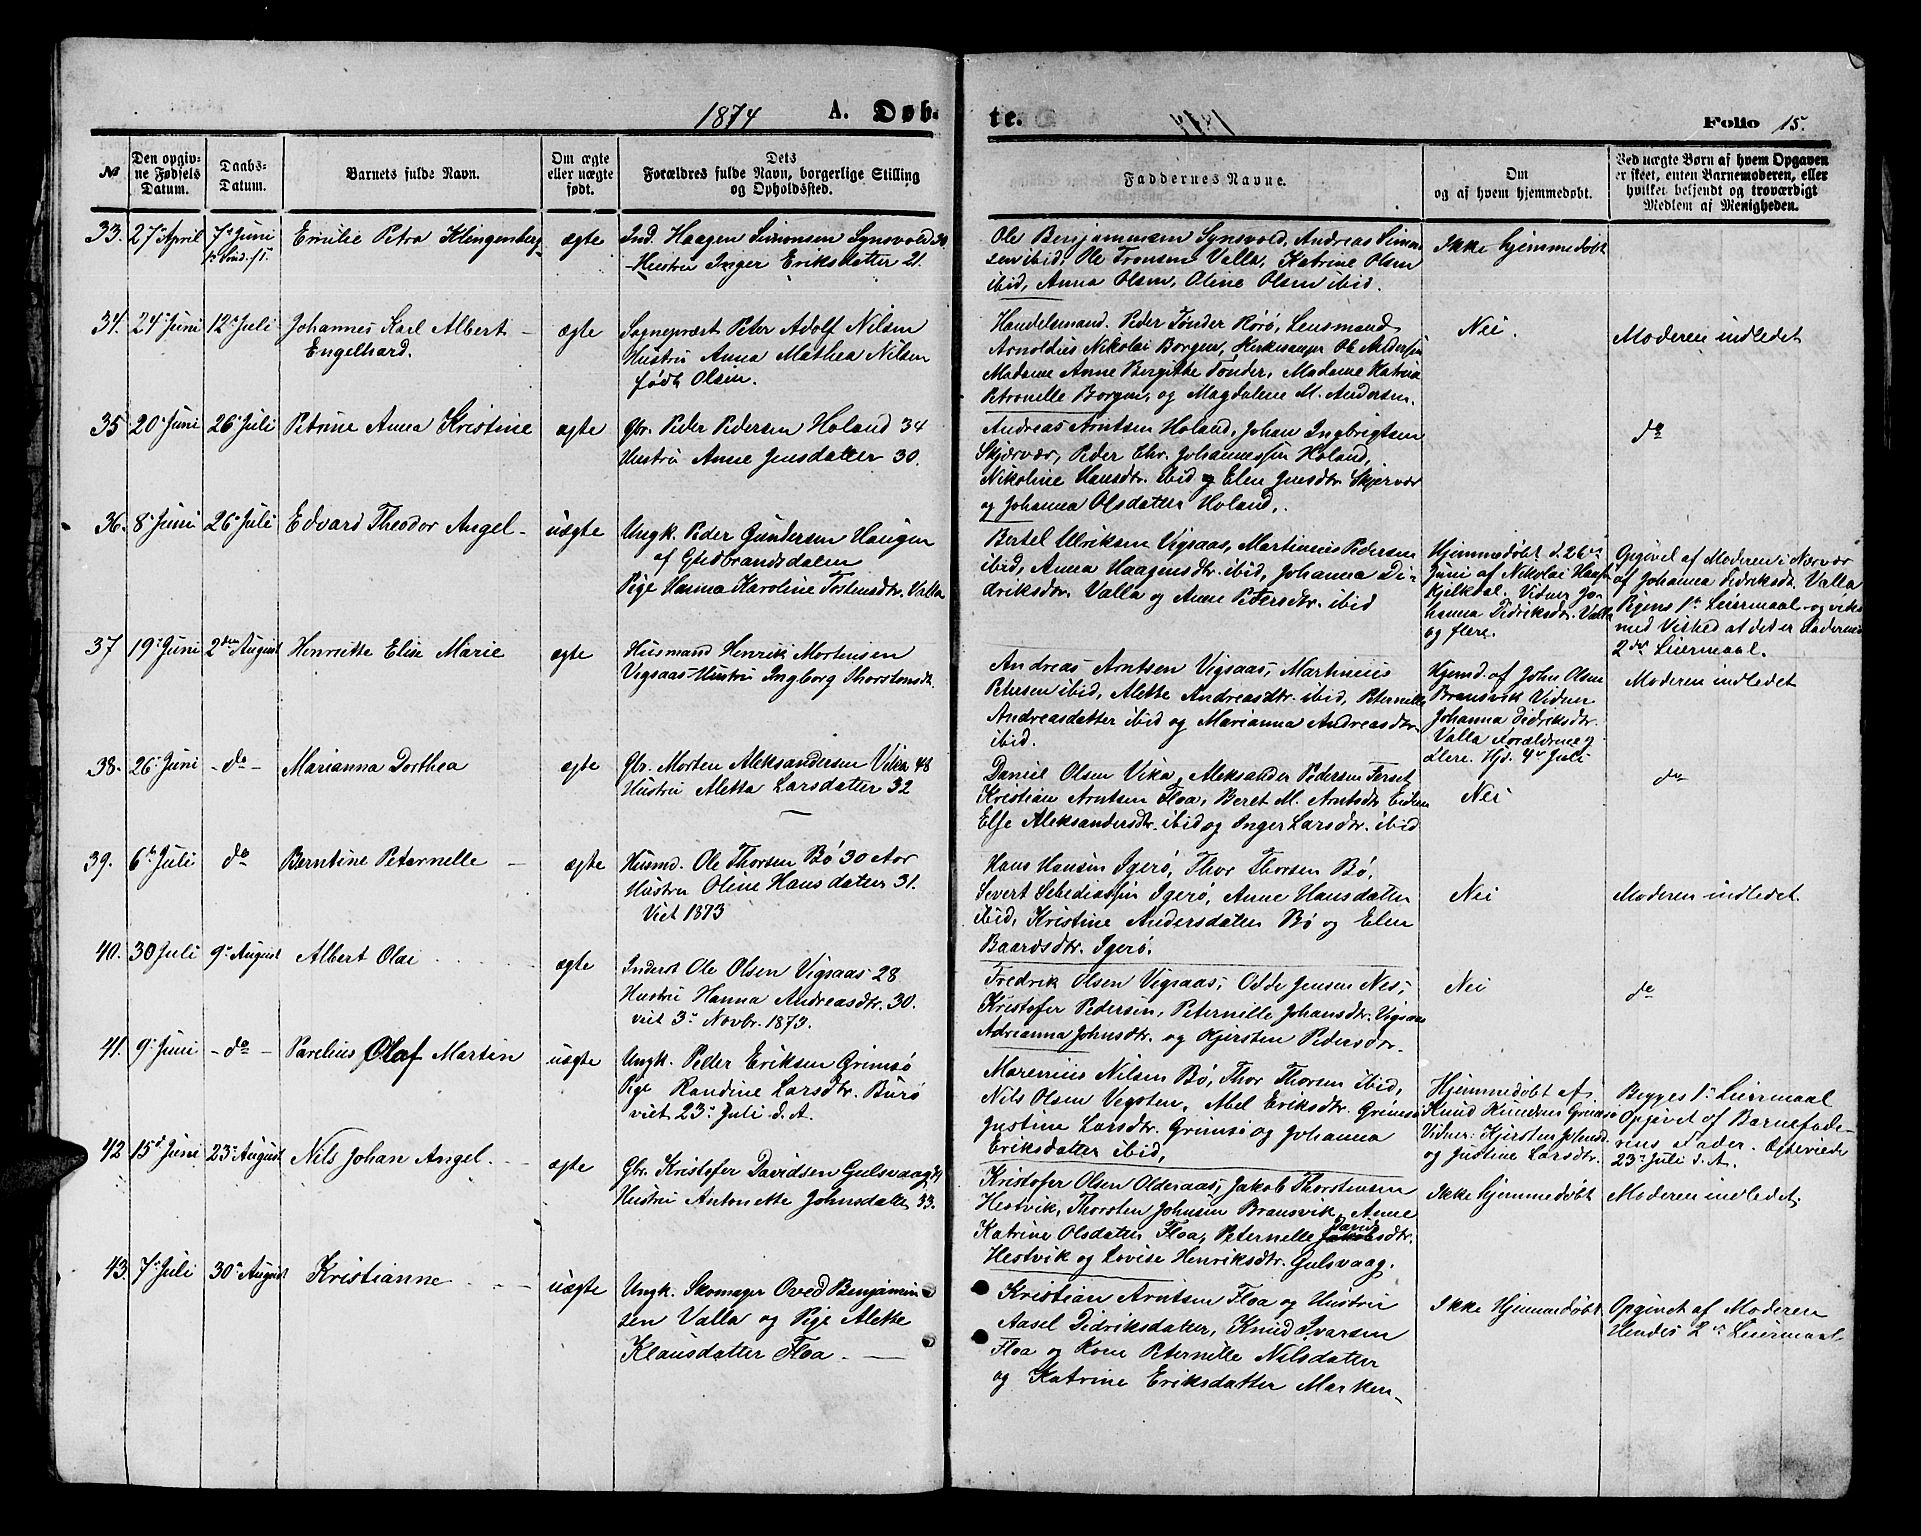 1874 A. Døb-
te. Folio 15.
№
Den opgiv-
ne Fødsels
Datum.
Daabs-
Datum.
Barnets fulde Navn.
Om ægte
eller uægte
født.
Dets
Forældres fulde Navn, borgerlige Stilling
og Opholdssted.
Faddernes Navne.
Om
og af hvem hjemmedøbt.
Ved uægte Børn af hvem Opgaven
er skeet, enten Barnemoderen, eller
hvilket bekjendt og troværdigt
Medlem af Menigheden.
33. 27 April 7 Juni Emilie Petra Klingenberg ægte
Ind. Haagen Simonsen Synsvold 30
Hustru Inger Eriksdatter 21.
Ole Benjaminsen Synsvold, Andreas Simon-
sen ibid, Ole Tronsen Valla, Katrine Olsen
ibid, Anna Olsen, Oline Olsen ibid.
Ikke hjemmedøbt
34. 24 Juni 12 Juli Johannes Karl Albert
Engelhard.
ægte
Sognepræst Peter Adolf Nilsen
Hustru Anna Mathea Nilsen
født Olsen.
Handelsmand Peder Tønder Rørø, Lensmand
Arnoldus Nikolai Borgen, Kirkesanger Ole Andersen
Madame Anne Birgitte Tønder, Madame Katrina
Petronelle Borgen, og Magdalene M. Andersen.
Nei.
Moderen indledet
35 20 Juni 26 Juli Petrine Anna Kristine ægte
Gbr. Peder Pedersen Holand 34
Hustru Anne Jensdatter 30.
Andreas Arntsen Holand, Johan Ingbrigtsen
Skjærvær, Peder Chr. Johannessen Holand,
Nikoline Hansdtr. ibid og Elen Jensdtr. Skjervær
og Johanna Olsdatter Holand.
do
36. 8 Juni 26 Juli Edvard Theodor Angel uægte
Ungk. Peder Gundersen Haugen
af Gudbrandsdalen
Pige Hanna Karoline Tostensdtr. Valla
Bertel Ulriksen Vigsaas, Martinus Pedersen
ibid, Anna Haagensdtr. ibid, Johanna Di-
driksdtr. Valla og Anne Petersdtr. ibid
Hjemmedøbt d. 26
Juni af Nikolai
Vidner Jo-
hanna Didriksdtr. Valla
og flere.
Opgivet af Moderen i Nærvær
af Johanna Didriksdt. Valla
Pigens 1st Leiermaal og
med Vished at det er Faderens
2det Leiermaal.
37 19 Juni 2den August Henrikke Elise Marie ægte
Husmand Henrik Mortensen
Vigsaas Hustru Ingborg Thorstensdt.
Andreas Arntsen Vigsaas, Martinius
Petersen ibid, Alette Andreasdtr. ibid, Peternelle
Andreasdatter ibid og Marianna Andreasdtr.
ibid.
Hjemd. af John Olsen
Bransvik Vidner
Johanna Didriksdtr.
Valla Forældrene og
flere. Hjd. 4 Juli
Moderen indledet
38. 26 Juni do Marianna Dorthea ægte
Gbr. Morten Aleksandersen Vika 48
Hustru Aletta Larsdatter 32
Daniel Olsen Vika, Aleksander Pedersen Forset,
Kristian Arntsen Floa, Beret M. Arntsdtr.
Else Aleksandersdtr. ibid og Inger Larsdtr. ibid
Nei
do
39. 6 Juli do Berntine Peternelle ægte
Husmd. Ole Thorsen Bø 30 Aar
Hustru Oline Hansdatter 31.
Viet 1873
Hans Hansen Igerø, Thor Thorsen Bø,
Severt Sebediassen Igerø, Anne Hansdatter
ibid, Kristine Andersdatter Bø og Elen
Baardsdtr. Igerø.
Nei
Moderen indledet.
40. 30 Juli 9 August Albert Olai ægte
Inderst Ole Olsen Vigsaas 28
Hustru Hanna Andreasdtr. 30.
viet 3 Novbr. 1873.
Fredrik Olsen Vigsaas, Odde Jensen Nes,
Kristofer Pedersen, Peternelle Johansdtr. Vigsaas
Adrianna Johnsdtr. og Kjersten Pedersdtr.
Nei
do
41. 9 Juni do Parelius Olaf Martin uægte
Ungk. Peder Eriksen Grimsø
Pige Randine Larsdtr. Burø
viet 23 Juli d. A.
Marenius Nilsen Bø, Thor Thorsen ibid,
Nils Olsen Vegsten, Abel Eriksdtr. Grimsø
Justine Larsdtr. Grimsø og Johanna
Eriksdatter ibid,
Hjemmedøbt af
Knud Knudsen Grimsø
Vidner: Kjersten Johnsd.
og Justine Larsdtr.
Begges 1 Leiermaal
Opgivet af Barnefade-
rens Fader. Egteviede
23 Juli d. A.
42 15 Juni 23 August Nils Johan Angel ægte
Gbr. Kristofer Davidsen Gulsvaag
Hustru Antonette Johnsdatter 33.
Kristofer Olsen Olderaas, Jakob Thorstensen
Hestvik, Thorsten Johnsen Bransvik, Anne
Katrine Olsdatter Floa, Peternelle Davidsdtr.
Hestvik og Lovise Henriksdtr. Gulsvaag.
Ikke hjemmedøbt
Moderen indledet.
43. 7 Juli 30 August Kristianne uægte
Ungk. Skomager Oved Benjamin
sen Valla og Pige Alette
Klausdatter Floa.
Kristian Arntsen Floa og Hustru
Aasel Didriksdatter, Knud Ivarsen
Floa og Kone Peternille Nilsdatter
og Katrine Eriksdatter Marken
Ikke Hjemmedøbt
Opgivet af Moderen
Hendes 2 Leiermaal